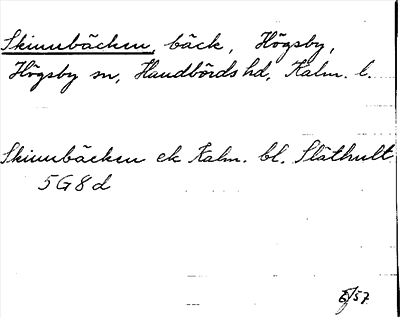 Skinnbäcken, bäck, Högsby,
Högsby sn, Handbörds hd, Kalm. l.
Skinnbäcken ek Kalm. bl. Släthult
5G8d
/57